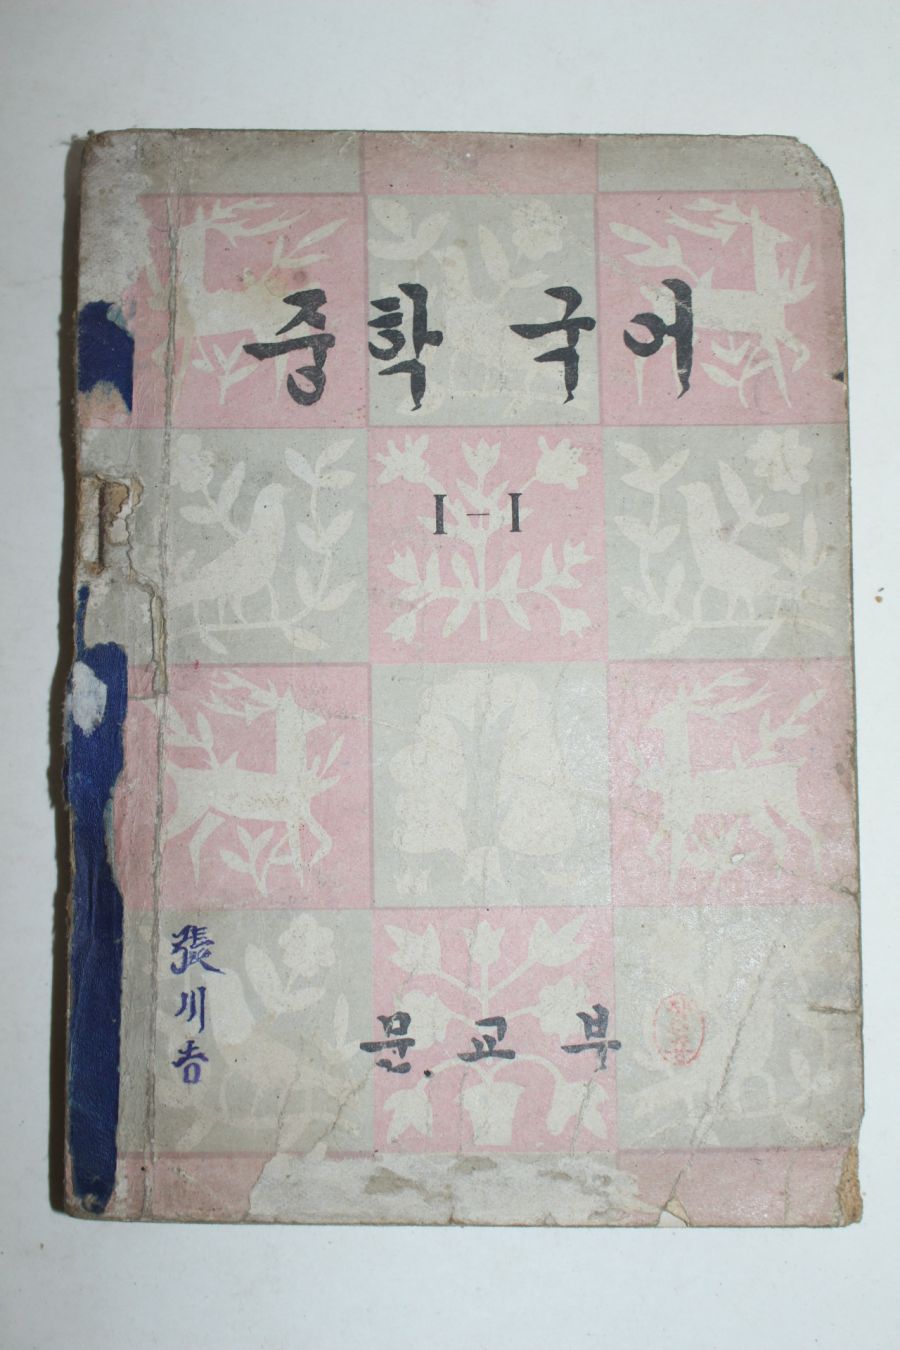 중학 국어
I-I
張川吉
문교부